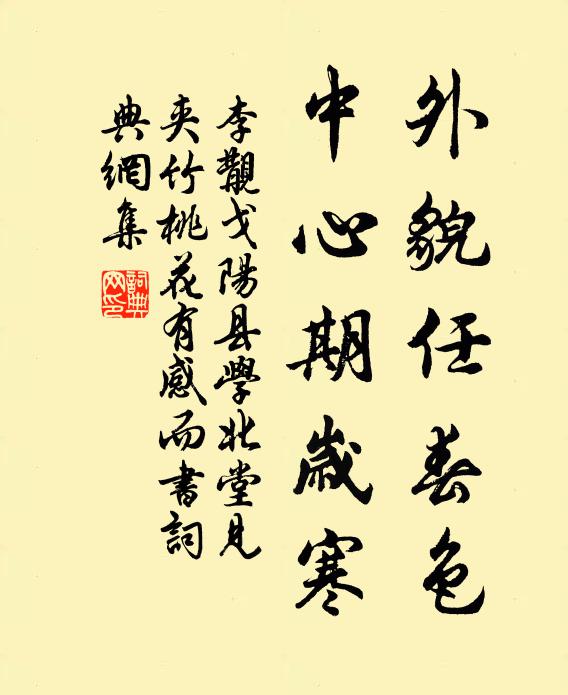 外貌任春色
中心期歲寒
李觀弋陽县學北堂見
夹竹桃花有感而書詞
典網集
詞典網印